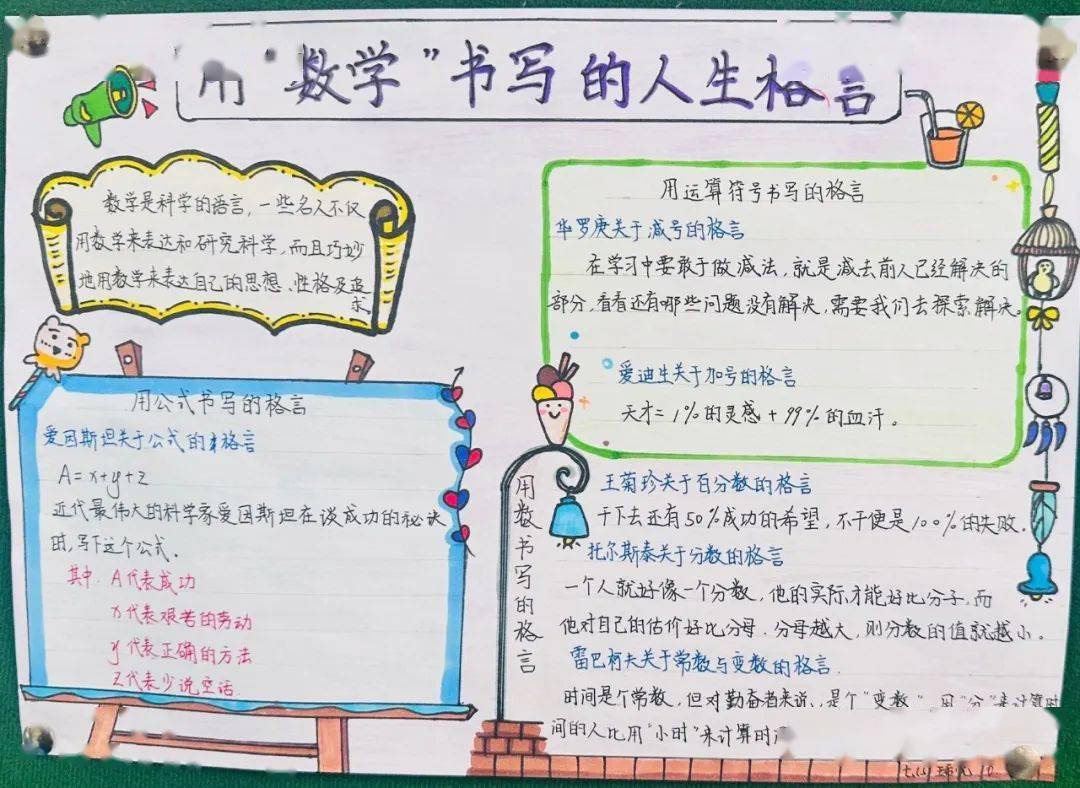 用“数学”书写的人生格言
数学是科学的语言，一些名人不仅
用数学来表达和研究科学，而且巧妙
地用数学来表达自己的思想、性格及追
求。
用公式书写的格言
爱因斯坦关于公式的格言
A=x+y+z
近代最伟大的科学家爱因斯坦在谈成功的秘诀
时，写下这个公式．
其中．A代表成功
x代表艰苦的劳动
y代表正确的方法
Z代表少说空话
用运算符号书写的格言
华罗庚关于减号的格言
在学习中要敢于做减法，就是减去前人已经解决的
部分，看看还有哪些问题没有解决，需要我们去探索解决。
爱迪生关于加号的格言
天才=1%的灵感+99%的血汗。
用数书写的格言
王菊珍关于百分数的格言
干下去还有50%成功的希望，不干便是100%的失败．
托尔斯泰关于分数的格言
一个人就好像一个分数，他的实际才能好比分子，而
他对自己的估价好比分母．分母越大，则分数的值就越小。
雷巴柯夫关于常数与变数的格言．
时间是个常数，但对勤奋者来说，是个“变数”．用“分”来计算时
间的人比用“小时”来计算时